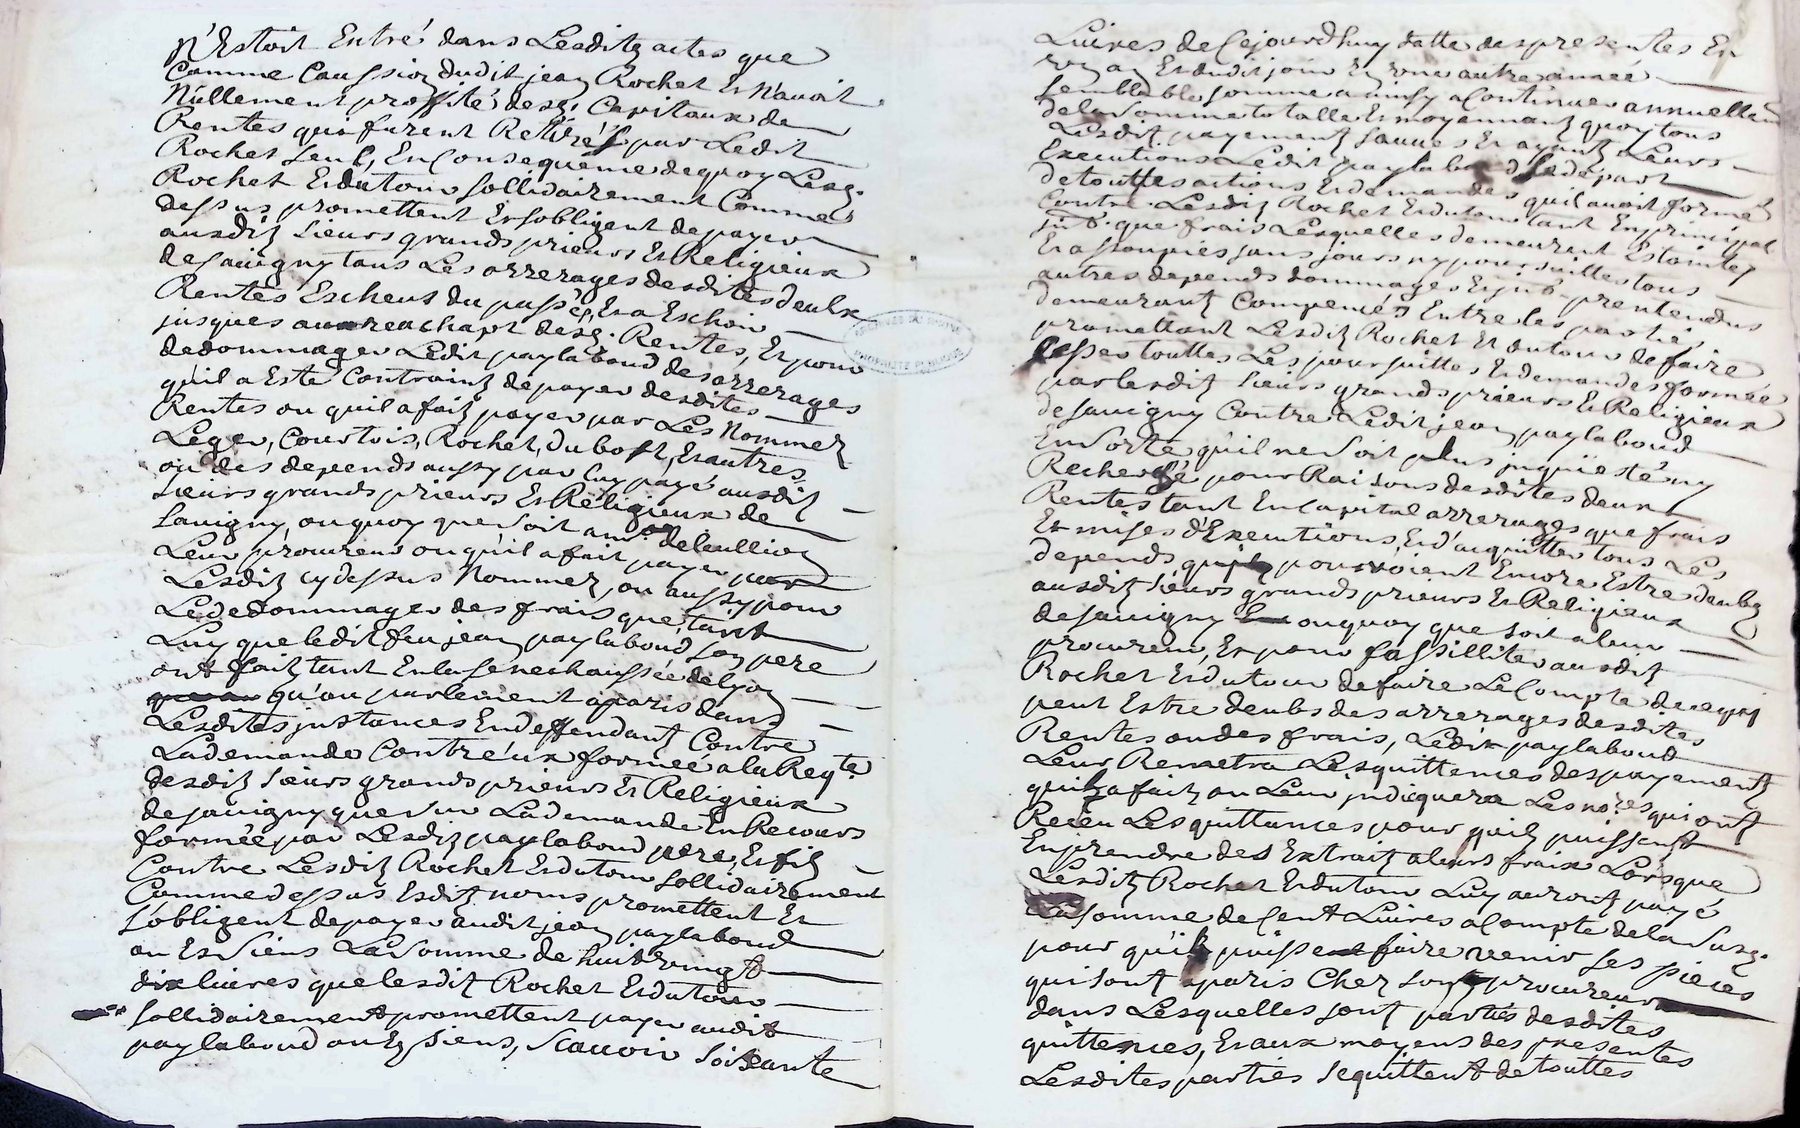 n'Estoit Entré dans Lesditz actes que
Comme Caussion dudit jean Rochet Et N'avoit
Nullement proffité desd. Capitaux de
Rentes qui furent Retirés par Ledit
Rochet seul, En Consequence de quoy Lesd.
Rochet Et dutour sollidairement Comme
dessus promettent Et sobligent de payer
ausditz sieurs grands prieurs Et Religieux
de savigny tous Les arrerages desdites deux
Rentes Escheus du passé, Et a Eschoir
jusques au reachapt desd. Rentes, Et pour
dedommager Ledit paylaboud des arrerages
qu'il a Esté Contraint de payer desdites
Rentes ou quil a fait payer par Les Nommez
Leger, Courtois, Rochet, dubost, Et autres
ou des depends aussy par luy payé ausdit
sieurs grands prieurs Et Religieux de
savigny, ou quoy que soit a
Leur procureur ou qu'il a fait payer par
Lesditz cy dessus Nommez, ou aussy pour
Le dedommager des frais que tant
Luy que ledit feu jean paylaboud son pere
ont fait tant En la senechaussée de lyon
qu'au parlement a paris dans
Lesdites jnstances En deffendant Contre
La demande Contre eux formée a la Reqte
desditz sieurs grands prieurs Et Religieux
de savigny que sur La demande En Recours
formée par Lesditz paylaboud pere, Et filz
Contre Lesditz Rochet Et dutour sollidairement
Comme dessus Esditz noms promettent Et
s'obligent de payer audit jean paylaboud
ou Es siens La somme de huit vingt
dix livres que lesditz Rochet Et dutour
sollidairement promettent payer audit
paylaboud ou Es siens, scavoir soixante
Livres de Cejourdhuy datte des presentes En
un an Et dudit jour En une autre année
semblable somme a ainsy a Continuer annuellem
de la somme totalle Et moyennant quoy tous
Lesditz payement sauves Et ayant Leurs
Executions Ledit paylaboud se depart
de touttes actions Et demandes quil avoit formé
Contre Lesditz Rochet Et dutour tant En principal
que frais Lesquelles demeurent Estaintes
Et assoupies sans jours ny poursuittes tous
autres depends dommages Et pretendus
demeurant Compensés Entre les parties
promettant Lesditz Rochet Et dutour de faire
Cesser touttes Les poursuittes Et demandes formée
par lesditz sieurs grands prieurs Et Religieux
de savigny Contre Ledit jean paylaboud
En sorte qu'il ne soit plus jnquiesté ny
Recherché pour Raisons desdites deux
Rentes tant En Capital arrerages que frais
Et mises d'Executions, Et d'acquitter tous Les
depends pourroient Encore Estre deubs
ausditz sieurs grands prieurs Et Religieux
de savigny ou quoy que soit a leur
procureur, Et pour fassilliter ausditz
Rochet Et dutour de faire Le Compte de ce qui
peut Estre deubs des arrerages desdites
Rentes ou des frais, Ledit paylaboud
Leur Remetra Les quittences des payement
quil a fait ou Leur jndiquera Les no.res qui ont
Receu Les quittances pour quilz puissent
En prendre des Extraitz a leurs fraix Lorsque
Lesditz Rochet Et dutour Luy auront payé
La somme de Cent Livres a Compte de la susd.
pour qu'il puisse faire venir ses pieces
qui sont a paris Chez son procureur
dans Lesquelles sont parties desdites
quittences, Et aux moyens des presentes
Lesdites parties se quittent de touttes